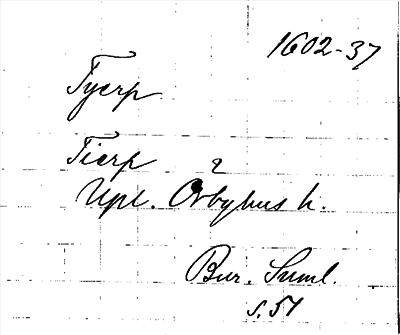 1602-37
Tyerp
Tierp
2
Upl. Örbyhus h.
Bur. Suml.
s. 51